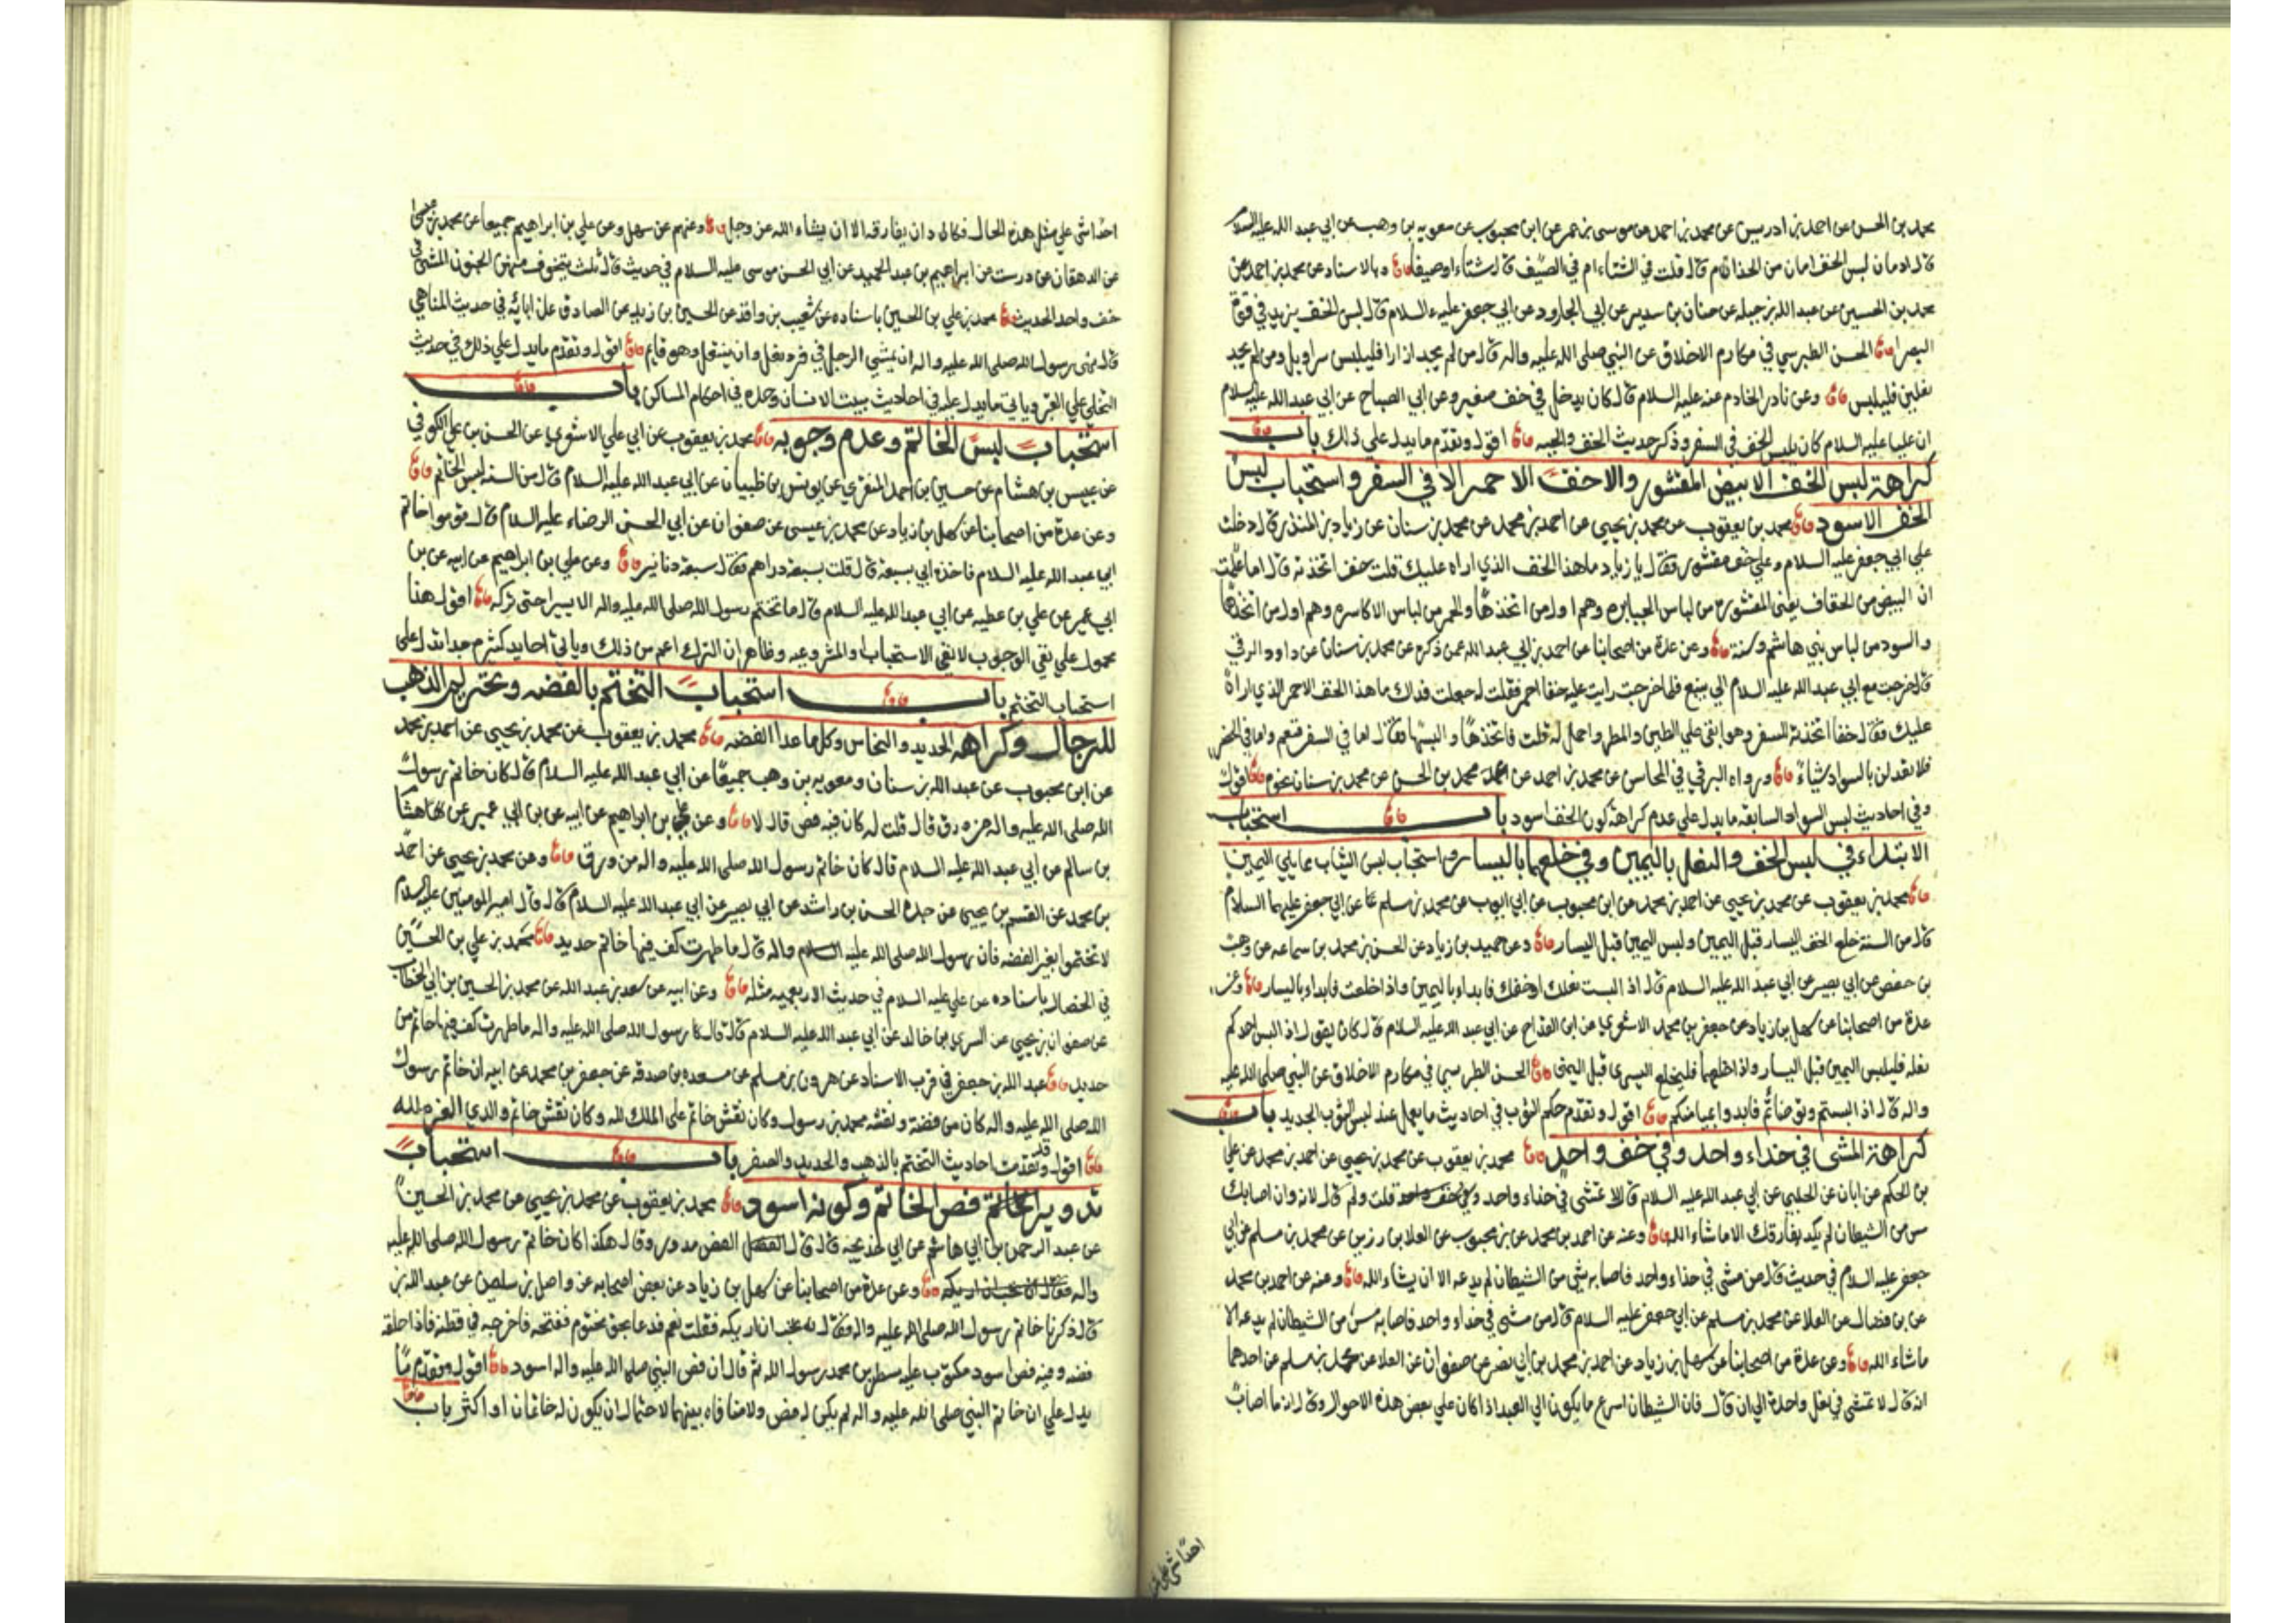 محمد بن الحسن عن احمد بن ادريس عن محمد بن احمد عن موسى بن عمر عن ابن محبوب عن معويه بن وهب عن ابي عبد الله عليه السلام
قال ادمان لبس الخف امان من الجذام قال قلت في الشتاء ام في الصيف قال شتاء اوصيفا وبالاسناد عن محمد بن احمد عن
محمد بن الحسين عن عبد الله بن جبله عن حنان بن سدير عن ابي الجارود عن ابي جعفر عليه السلام قال لبس الخف يزيد في قوة
البصر الحسن الطبرسي في مكارم الاخلاق عن النبي صلى الله عليه واله قال من لم يجد ازارا فليلبس سراويل ومن لم يجد
نعلين فليلبس وعن نادر الخادم عنه عليه السلام قال كان يدخل في خف صغير وعن ابي الصباح عن ابي عبد الله عليه السلام
ان عليا عليه السلام كان يلبس الخف في السفر وذكر حديث الخف والجبه اقول وتقدم ما يدل علي ذلك باب
كراهة لبس الخف الابيض المقشور والاخف الاحمر الا في السفر واستحباب لبس
الخف الاسود محمد بن يعقوب عن محمد بن يحيي عن احمد بن محمد عن محمد بن سنان عن زياد بن المنذر قال دخلت
علي ابي جعفر عليه السلام وعلي خف مقشور فقال يا زياد ما هذا الخف الذي اراه عليك قلت خف اتخذته قال اما علمت
ان البيض من الخفاف يعني المقشوره من لباس الجبابره وهم اول من اتخذها والحمر من لباس الاكاسره وهم اول من اتخذها
والسود من لباس بني هاشم وسنة وعن عدة من اصحابنا عن احمد بن ابي عبد الله عمن ذكره عن محمد بن سنان عن داود الرقي
قال خرجت مع ابي عبد الله عليه السلام الي ينبع فلما خرجت رايت عليه خفا احمر فقلت له جعلت فداك ما هذا الخف الاحمر الذي اراه
عليك فقال خفا اتخذته للسفر وهو ابقي علي الطين والمطر واحمل له قلت فاتخذها والبسها فقال اما في السفر فنعم واما في الحضر
فلا تعدلن بالسواد شياء ورواه البرقي في المحاسن عن محمد بن احمد عن محمد بن الحسن عن محمد بن سنان نحوه اقول
وفي احاديث لبس السواد السابقه ما يدل علي عدم كراهة كون الخف اسود باب استحباب
الابتداء في لبس الخف والنعل باليمين وفي خلعهما باليسار واستحباب لبس الثياب مما يلي اليمين
محمد بن يعقوب عن محمد بن يحيي عن احمد بن محمد عن ابن محبوب عن ابي ايوب عن محمد بن مسلم عن ابي جعفر عليهما السلام
قال من السنة خلع الخف اليسار قبل اليمين ولبس اليمين قبل اليسار وعن حميد بن زياد عن الحسن بن محمد بن سماعه عن وهب
بن حفص عن ابي بصير عن ابي عبد الله عليه السلام قال اذا لبست نعلك او خفك فابداء باليمين واذا خلعت فابداء باليسار وعن
عدة من اصحابنا عن سهل بن زياد عن جعفر بن محمد الاشعري عن ابن القداح عن ابي عبد الله عليه السلام قال كان يقول اذا لبس احدكم
نعله فليلبس اليمين قبل اليسار واذا خلعها فليخلع اليسري قبل اليمني الحسن الطبرسي في مكارم الاخلاق عن النبي صلى الله عليه
واله قال اذا لبستم وتوضاتم فابدوا بميامنكم اقول وتقدم حكم الثوب في احاديث ما يعمل عند لبس الثوب الجديد باب
كراهة المشي في حذاء واحد وفي خف واحد محمد بن يعقوب عن محمد بن يحيي عن احمد بن محمد عن علي
بن الحكم عن ابان عن الحلبي عن ابي عبد الله عليه السلام قال لا تمشي في حذاء واحد قلت ولم قال لانه وان اصابك
مس من الشيطان لم يكد يفارقك الا ما شاء الله وعنه عن احمد بن محمد عن بن محبوب عن العلا بن رزين عن محمد بن مسلم عن ابي
جعفر عليه السلام في حديث قال من مشي في حذاء واحد فاصابه شي من الشيطان لم يدعه الا ان يشاء الله وعنه عن احمد بن محمد
عن بن فضال عن العلا عن محمد بن مسلم عن ابي جعفر عليه السلام قال من مشي في حذاء واحد فاصابه مس من الشيطان لم يدعه الا
ماشاء الله وعن عدة من اصحابنا عن سهل بن زياد عن احمد بن محمد بن ابي نصر عن صفوان عن العلا عن محمد بن مسلم عن احدهما
انه قال لا تمشي في نعل واحدة الي ان قال فان الشيطان اسرع ما يكون الي العبد اذا كان علي بعض هذه الاحوال وقال انه ما اصاب
احدا شي علي
احدا شي علي مثل هذه الحال فكاد ان يفارقه الا ان يشاء الله عز وجل وعنهم عن سهل وعن علي بن ابراهيم جميعا عن محمد بن عيسي
عن الدهقان عن درست عن ابراهيم بن عبد الحميد عن ابي الحسن موسى عليه السلام في حديث قال ثلث يتخوف منهن الجنون المشي في
خف واحد الحديث محمد بن علي بن الحسين باسناده عن شعيب بن واقد عن الحسين بن زيد عن الصادق عن ابائه في حديث المناهي
قال نهى رسول الله صلى الله عليه واله ان يمشي الرجل في فرد نعل وان يتنعل وهو قايم اقول وتقدم ما يدل علي ذلك في حديث
التخلي علي القبر وياتي ما يدل عليه في احاديث مبيت الانسان وحده في احكام المساكن باب
استحباب لبس الخاتم وعدم وجوبه محمد بن يعقوب عن ابي علي الاشعري عن الحسن بن علي الكوفي
عن عبيس بن هشام عن حسين بن احمد المنقري عن يونس بن ظبيان عن ابي عبد الله عليه السلام قال من السنه لبس الخاتم
وعن عدة من اصحابنا عن سهل بن زياد عن محمد بن عيسي عن صفوان عن ابي الحسن الرضاء عليه السلام قال قوموا خاتم
ابي عبد الله عليه السلام فاخذه ابي بسبعة قال قلت بسبعة دراهم فقال سبعة دنانير وعن علي بن ابراهيم عن ابيه عن بن
ابي عمير عن علي بن عطيه عن ابي عبد الله عليه السلام قال ما تختم رسول الله صلى الله عليه واله الا يسيرا حتى تركه اقول هذا
محمول علي نفي الوجوب لا نفي الاستحباب والمشروعيه وظاهر ان الترك اعم من ذلك وياتي احاديث كثيرة جدا تدل على
استحباب التختم باب استحباب التختم بالفضه وتحريم الذهب
للرجال وكراهه الحديد والنحاس وكلما عدا الفضه محمد بن يعقوب عن محمد بن يحيي عن احمد بن محمد
عن ابن محبوب عن عبد الله بن سنان ومعويه بن وهب جميعا عن ابي عبد الله عليه السلام قال كان خاتم رسول
الله صلى الله عليه واله من ورق قال قلت له كان فيه فص قال لا وعن علي بن ابراهيم عن ابيه عن بن ابي عمير عن هشام
بن سالم عن ابي عبد الله عليه السلام قال كان خاتم رسول الله صلى الله عليه واله من ورق وعن محمد بن يحيي عن احمد
بن محمد عن القسم بن يحيي عن جده الحسن بن راشد عن ابي بصير عن ابي عبد الله عليه السلام قال قال امير المومنين عليه السلام
لا تختموا بغير الفضه فان رسول الله صلى الله عليه واله قال ما طهرت كف فيها خاتم حديد محمد بن علي بن الحسين
في الخصال باسناده عن علي عليه السلام في حديث الاربعميه مثله وعن ابيه عن سعد بن عبد الله عن محمد بن الحسين بن ابي الخطاب
عن صفوان بن يحيي عن السري بن خالد عن ابي عبد الله عليه السلام قال قال رسول الله صلى الله عليه واله ما طهرت كف فيها خاتم من
حديد عبد الله بن جعفر في قرب الاسناد عن هرون بن مسلم عن مسعده بن صدقه عن جعفر بن محمد عن ابيه ان خاتم رسول
الله صلى الله عليه واله كان من فضة ونقشه محمد بن رسول وكان نقش خاتم على الملك لله وكان نقش خاتم والدي العزه لله
اقول وقد تقدمت احاديث التختم بالذهب والحديد والصفر باب استحباب
تدوير فص الخاتم وكونه اسود محمد بن يعقوب عن محمد بن يحيي عن محمد بن الحسين
عن عبد الرحمن بن ابي هاشم عن ابي خديجه قال قال الفص مدور وقال هكذا كان خاتم رسول الله صلى الله عليه
واله وعن عدة من اصحابنا عن سهل بن زياد عن بعض اصحابه عن واصل بن سليمن عن عبد الله بن
قال ذكرنا خاتم رسول الله صلى الله عليه واله وقال تحب ان اريكه فقلت نعم فدعا بحق مختوم ففتحه فاخرجه في قطنة فاذا حلقه
فضه وفيه فص اسود مكتوب عليه سطرين محمد رسول الله ثم قال ان فص النبي صلى الله عليه واله اسود اقول وتقدم ما
يدل علي ان خاتم النبي صلى الله عليه واله لم يكن له فص ولا منافاه بينهما لاحتمال ان يكون له خاتمان او اكثر باب